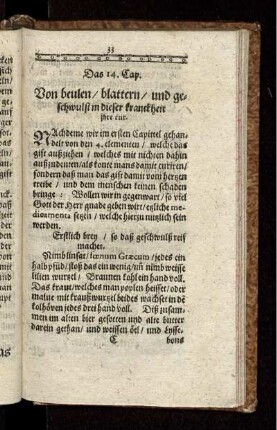 33
Das 14. Cap.
Von beulen / blattern / und ge-
schwulst in dieser kranckheit
jhre cur.
NAchdeme wir im ersten Capitel gehan-
delt von den 4. elementen / welche das
gift außziehen / welches mit nichten dahin
außzudeuten / als konte mans damit curiren /
sondern daß man das gift damit vom hertzen
treibe / und dem menschen keinen schaden
bringe: Wollen wir in gegenwart / so viel
Gott der Herr gnade geben wirt / etzliche me-
dicamenta setzen / welche hierzu nutzlich sein
werden.
Erstlich brey / so daß geschwulß reif
machet.
Nimb linsat / fœnum Græcum / jedes ein
halb pfüd / stoß das ein wenig / uñ nimb weisse
lilien wurtzel / Braunen kohl ein hand voll.
Das kraut / welches man poylen heisset / oder
malue mit krauß wurtzel beides wächset in dē
kolhöven jedes drei hand voll. Diß zusam-
men im alten bier gesotten und alte butter
darein gethan / und weissen öel / und Eysse-
C
bons
as